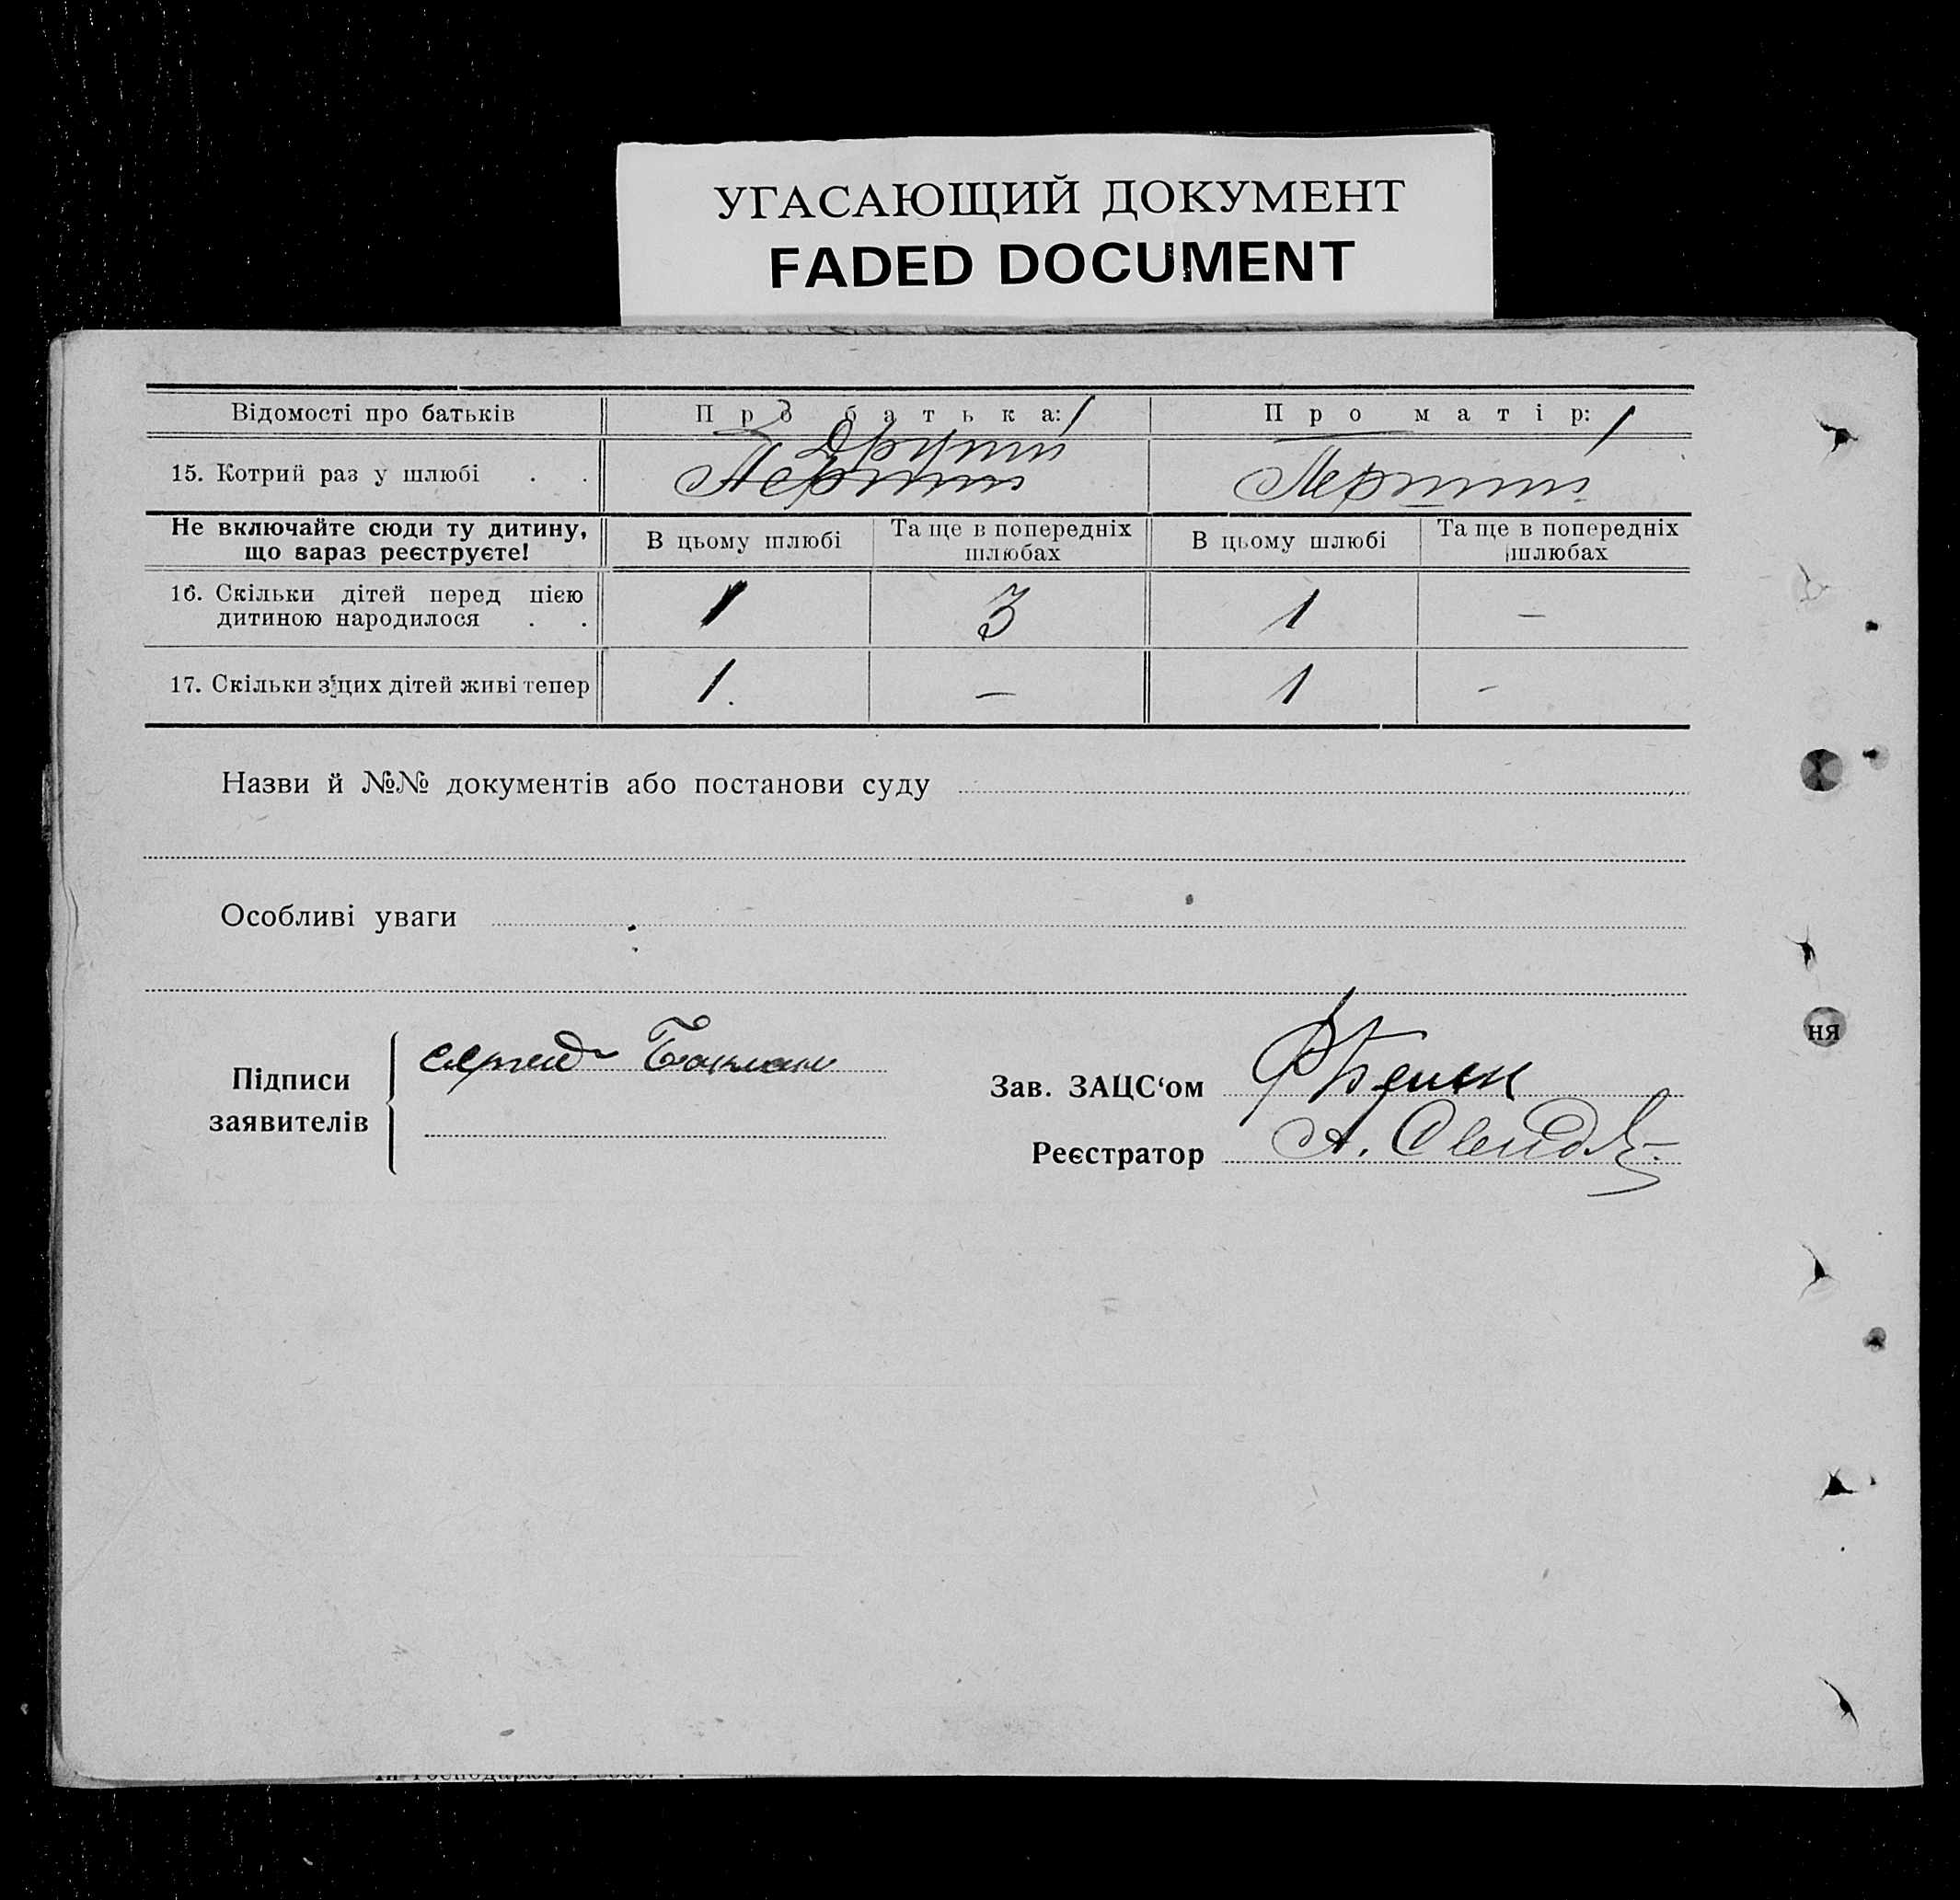 УГАСАЮЩИЙ ДОКУМЕНТ
FADED DOCUMENT
Відомості про батьків Про батька: Про матір:
Другий
15. Котрий раз у шлюбі . . Перший Перший
Не включайте сюди ту дитину, що зараз реєструєте! В цьому шлюбі Та ще в попередніх шлюбах В цьому шлюбі Та ще в попередніх шлюбах
16. Скільки дітей перед цією дитиною народилося . . 1 3 1 —
17. Скільки з цих дітей живі тепер 1. — 1 -
Назви й №№ документів або постанови суду
Особливі уваги
Підписи заявителів
Зав. ЗАЦС‘ом
Реєстратор А.
ня